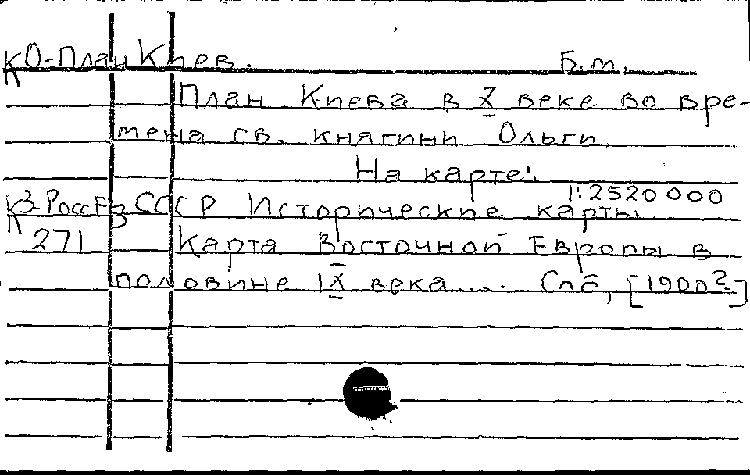 К0-План Киев. Б.м.
План Киева в X веке во вре-
мена св. княгини Ольги.
На карте:
1:2520000
К3-Росс СССР Исторические карты
271 Карта Восточной Европы в
половине IX века... Спб, [1900?]